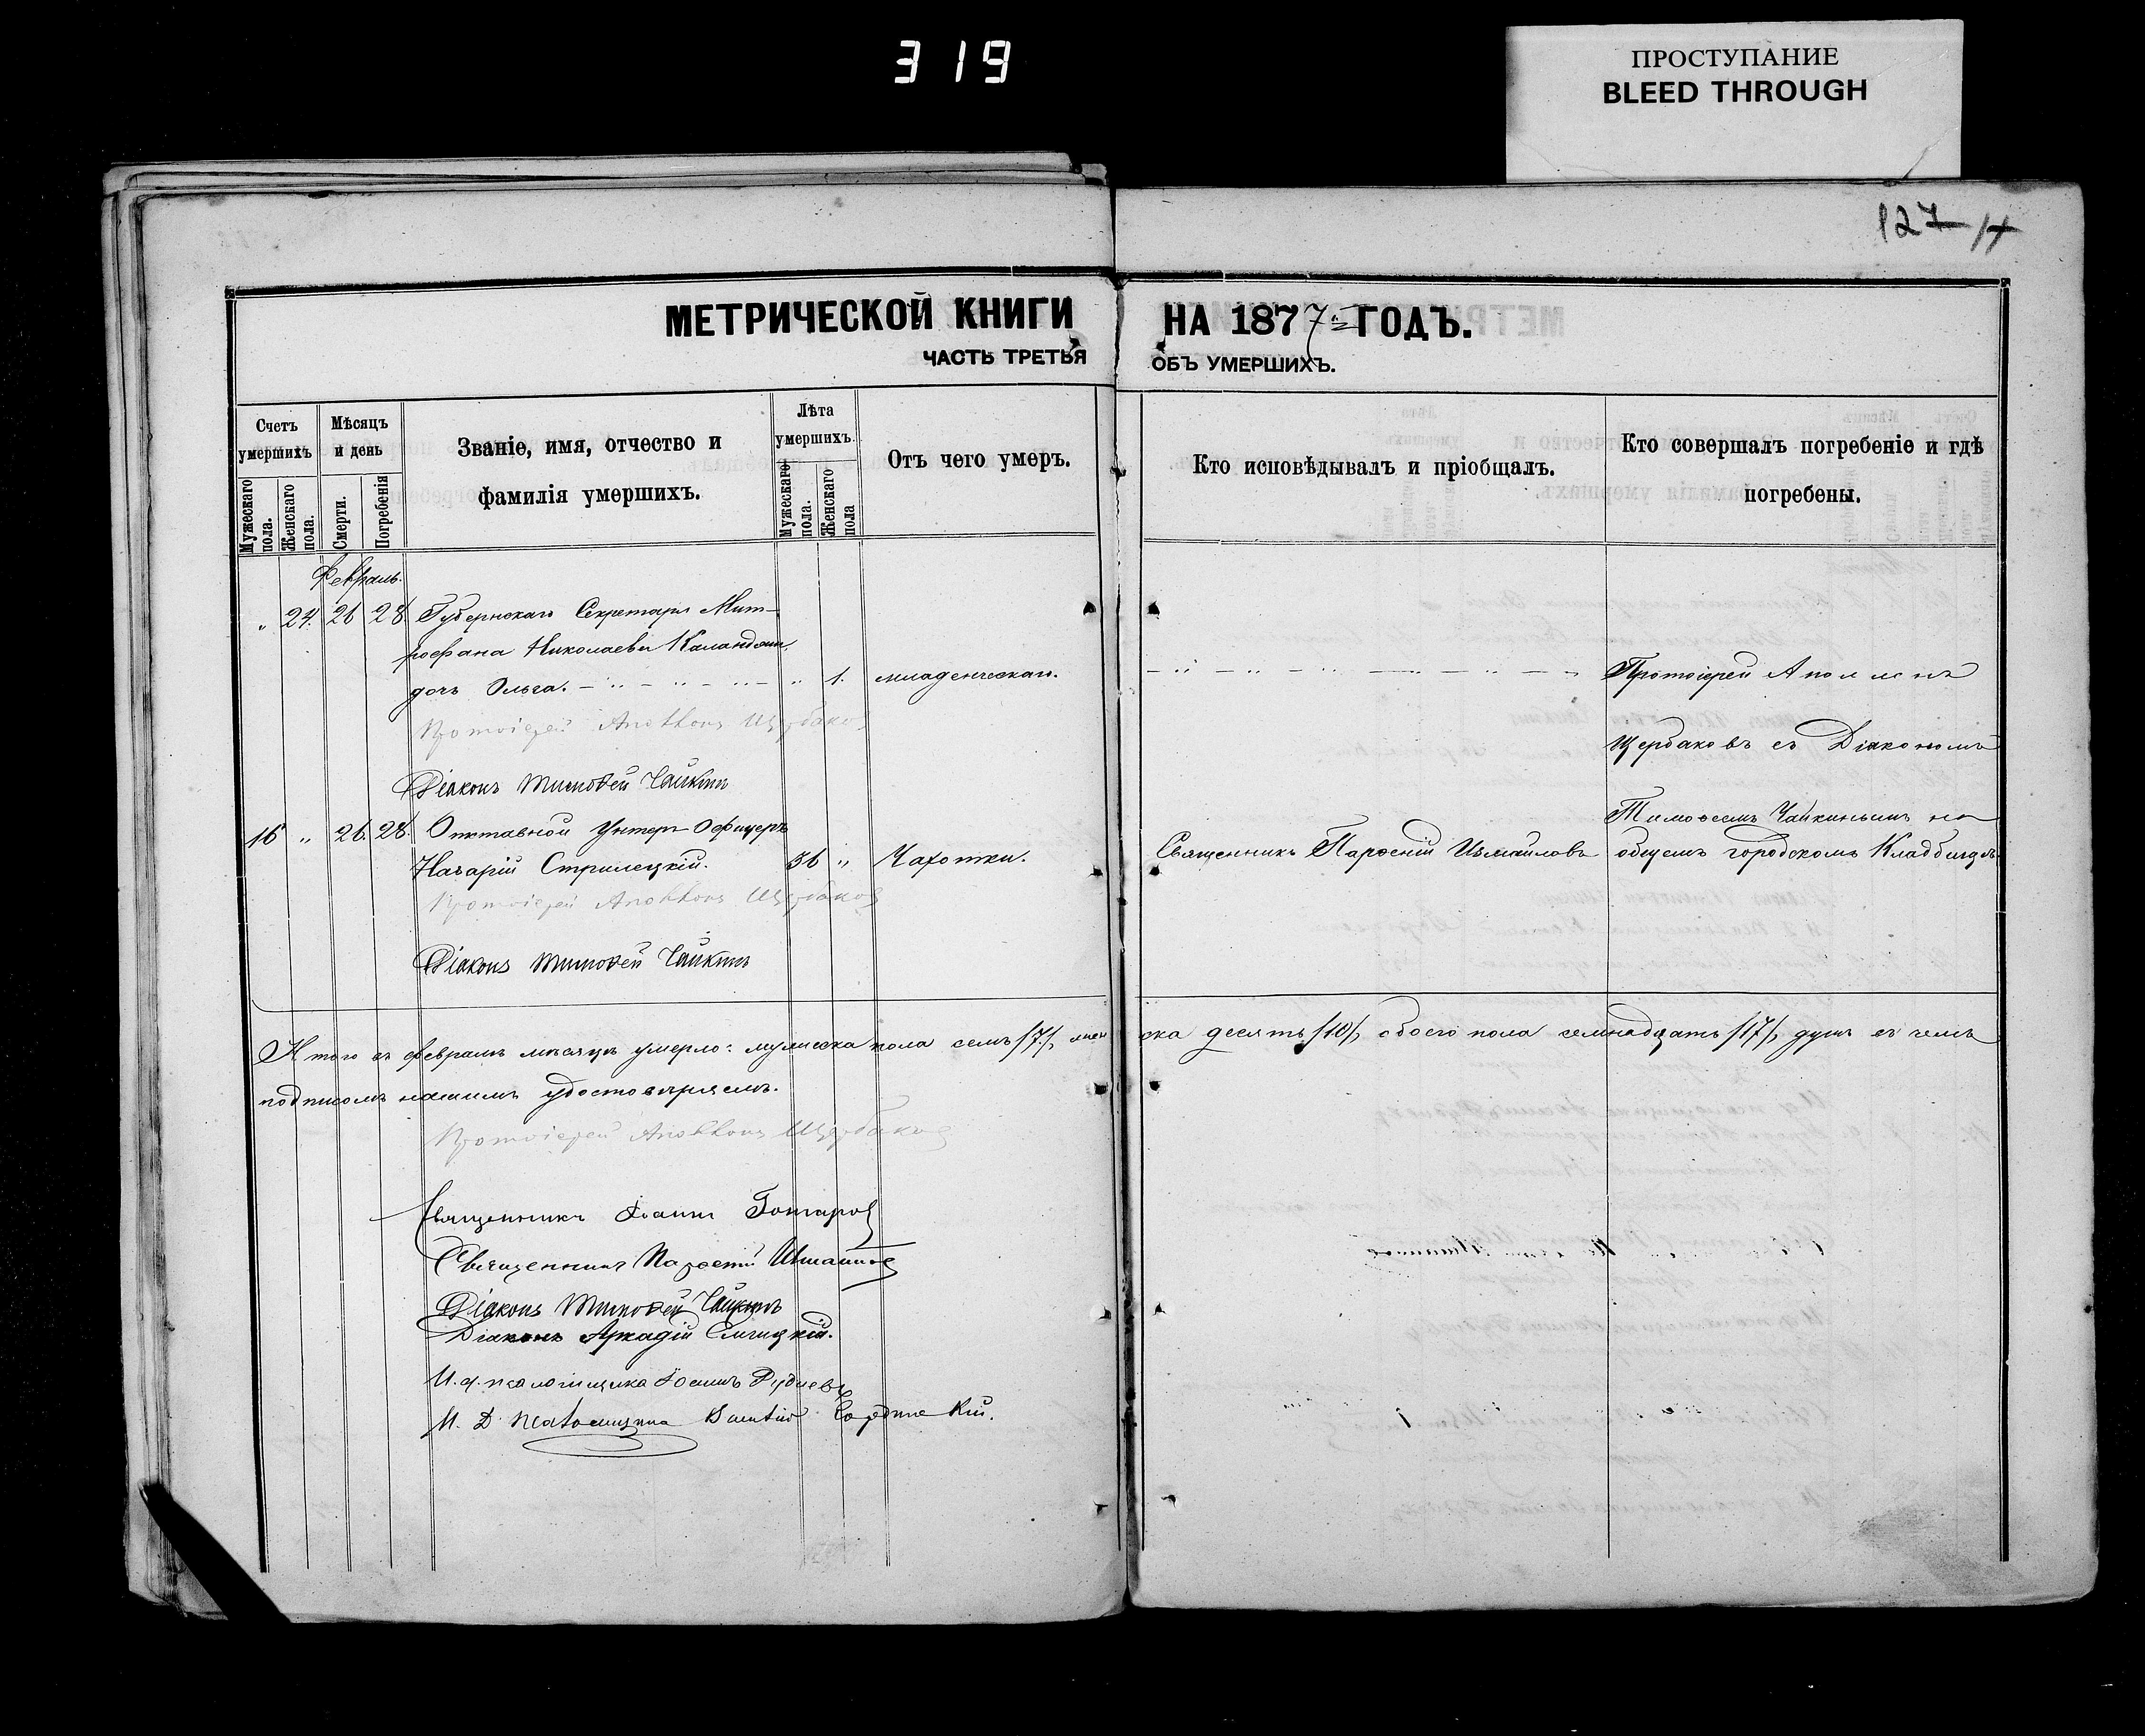 319
ПРОСТУПАНИЕ
BLEED THROUGH
127
МЕТРИЧЕСКОЙ КНИГИ НА 1877 ГОДЪ.
ЧАСТЬ ТРЕТЬЯ ОБЪ УМЕРШИХЪ.
Счетъ умершихъ
Мужескаго пола.
Женскаго пола.
Мѣсяцъ и день
Смерти.
Погребенія
Званіе, имя, отчество и
фамилія умершихъ.
Лѣта умершихъ
Мужескаго пола.
Женскаго пола
Отъ чего умеръ.
Кто исповѣдывалъ и пріобщалъ.
Кто совершалъ погребеніе и гдѣ
погребены.
Февраль.
" 24. 26 28. Губернскаго Секретаря Мит-
рофана Николаева
дочь Ольга. " 1. младенческая.
Протоіерей Аполлонъ
Протоіерей Аполлонъ Щербаковъ
Щербаковъ съ Діакономъ
Діаконъ Тимофей Чайкинъ
Тимофеемъ Чайкинымъ на
16 " 26. 28. Отставной Унтеръ-Офицеръ
Назарій Стрилецкій. 36 " Чахотки. Священникъ Парфеній Измайловъ общемъ городскомъ Кладбищѣ
Протоіерей Аполлонъ Щербаковъ
Діаконъ Тимофей Чайкинъ
Итого въ февралѣ мѣсяцѣ умерло: мужеска пола семь /7/, женска десять /10/, обоего пола семнадцать /17/, душъ въ чемъ
подписомъ нашимъ удостовѣряемъ.
Протоіерей Аполлонъ Щербаковъ
Священникъ Іоаннъ
Священникъ Парфеній Измайловъ
Діаконъ Тимофей Чайкинъ
Діаконъ Аркадій
И. д. псаломщика Іоаннъ
И. Д. Псаломщика